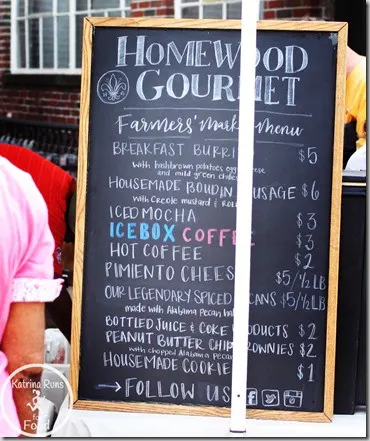 HOMEWOOD
GOURMET
Farmers' Market Menu
BREAKFAST BURRI $5
with hashbrown potatoes, egg, cheese
and mild green chiles
HOUSEMADE BOUDIN SAUSAGE $6
with creole mustard & Roll
ICED MOCHA $3
ICEBOX COFFEE $3
HOT COFFEE $2
PIMIENTO CHEESE $5/½ LB
OUR LEGENDARY SPICED PECANS $5/½ LB
made with Alabama Pecan
BOTTLED JUICE & COKE PRODUCTS $2
PEANUT BUTTER CHIP BROWNIES $2
with chopped Alabama pecans
HOUSEMADE COOKIE $1
→ FOLLOW US
Katrina Runs
for
Food